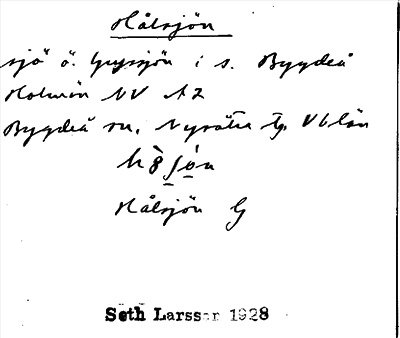 Hålsjön
sjö ö. Gussjön i s. Bygdeå
Holmön NV A2
Bygdeå sn, Nysätra tg. Vb län
Hålsjön G
Seth Larsson 1928